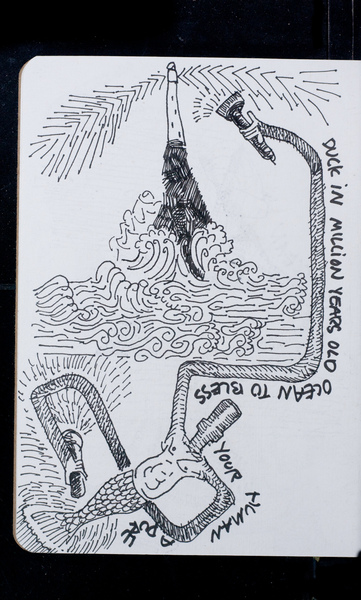 DUCK IN MILLION YEARS OLD
OCEAN TO BLESS
YOUR
HUMAN